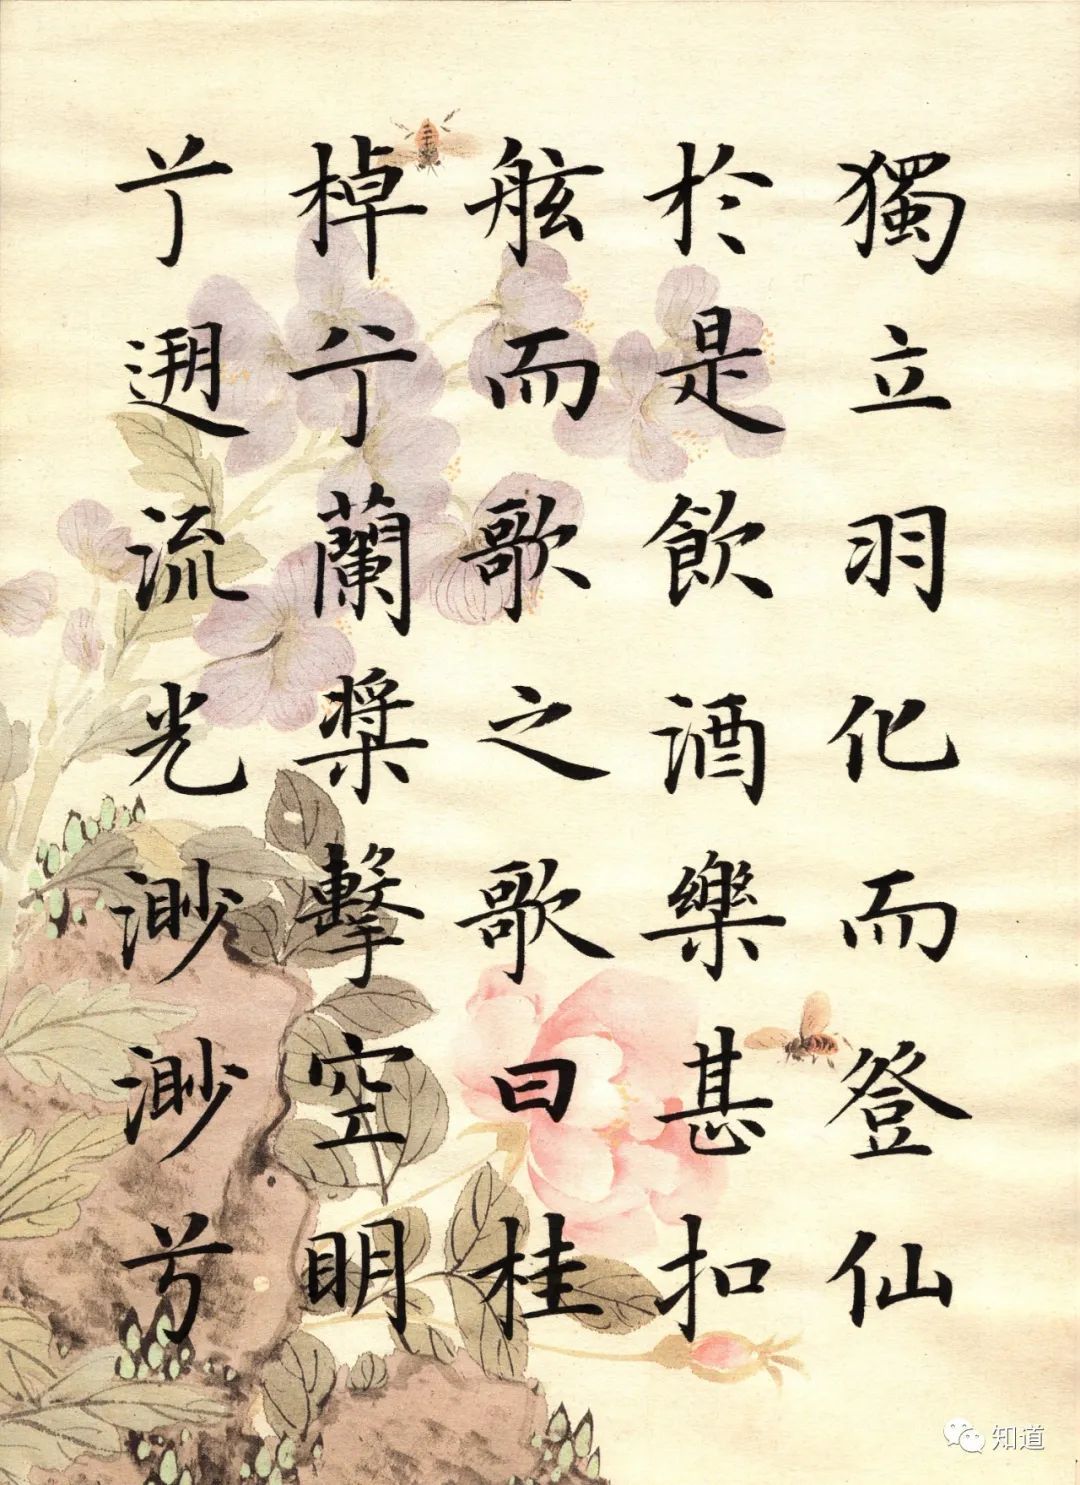 獨立羽化而登仙
於是飲酒樂甚扣
舷而歌之歌曰桂
棹兮蘭槳擊空明
兮遡流光渺渺兮
知道